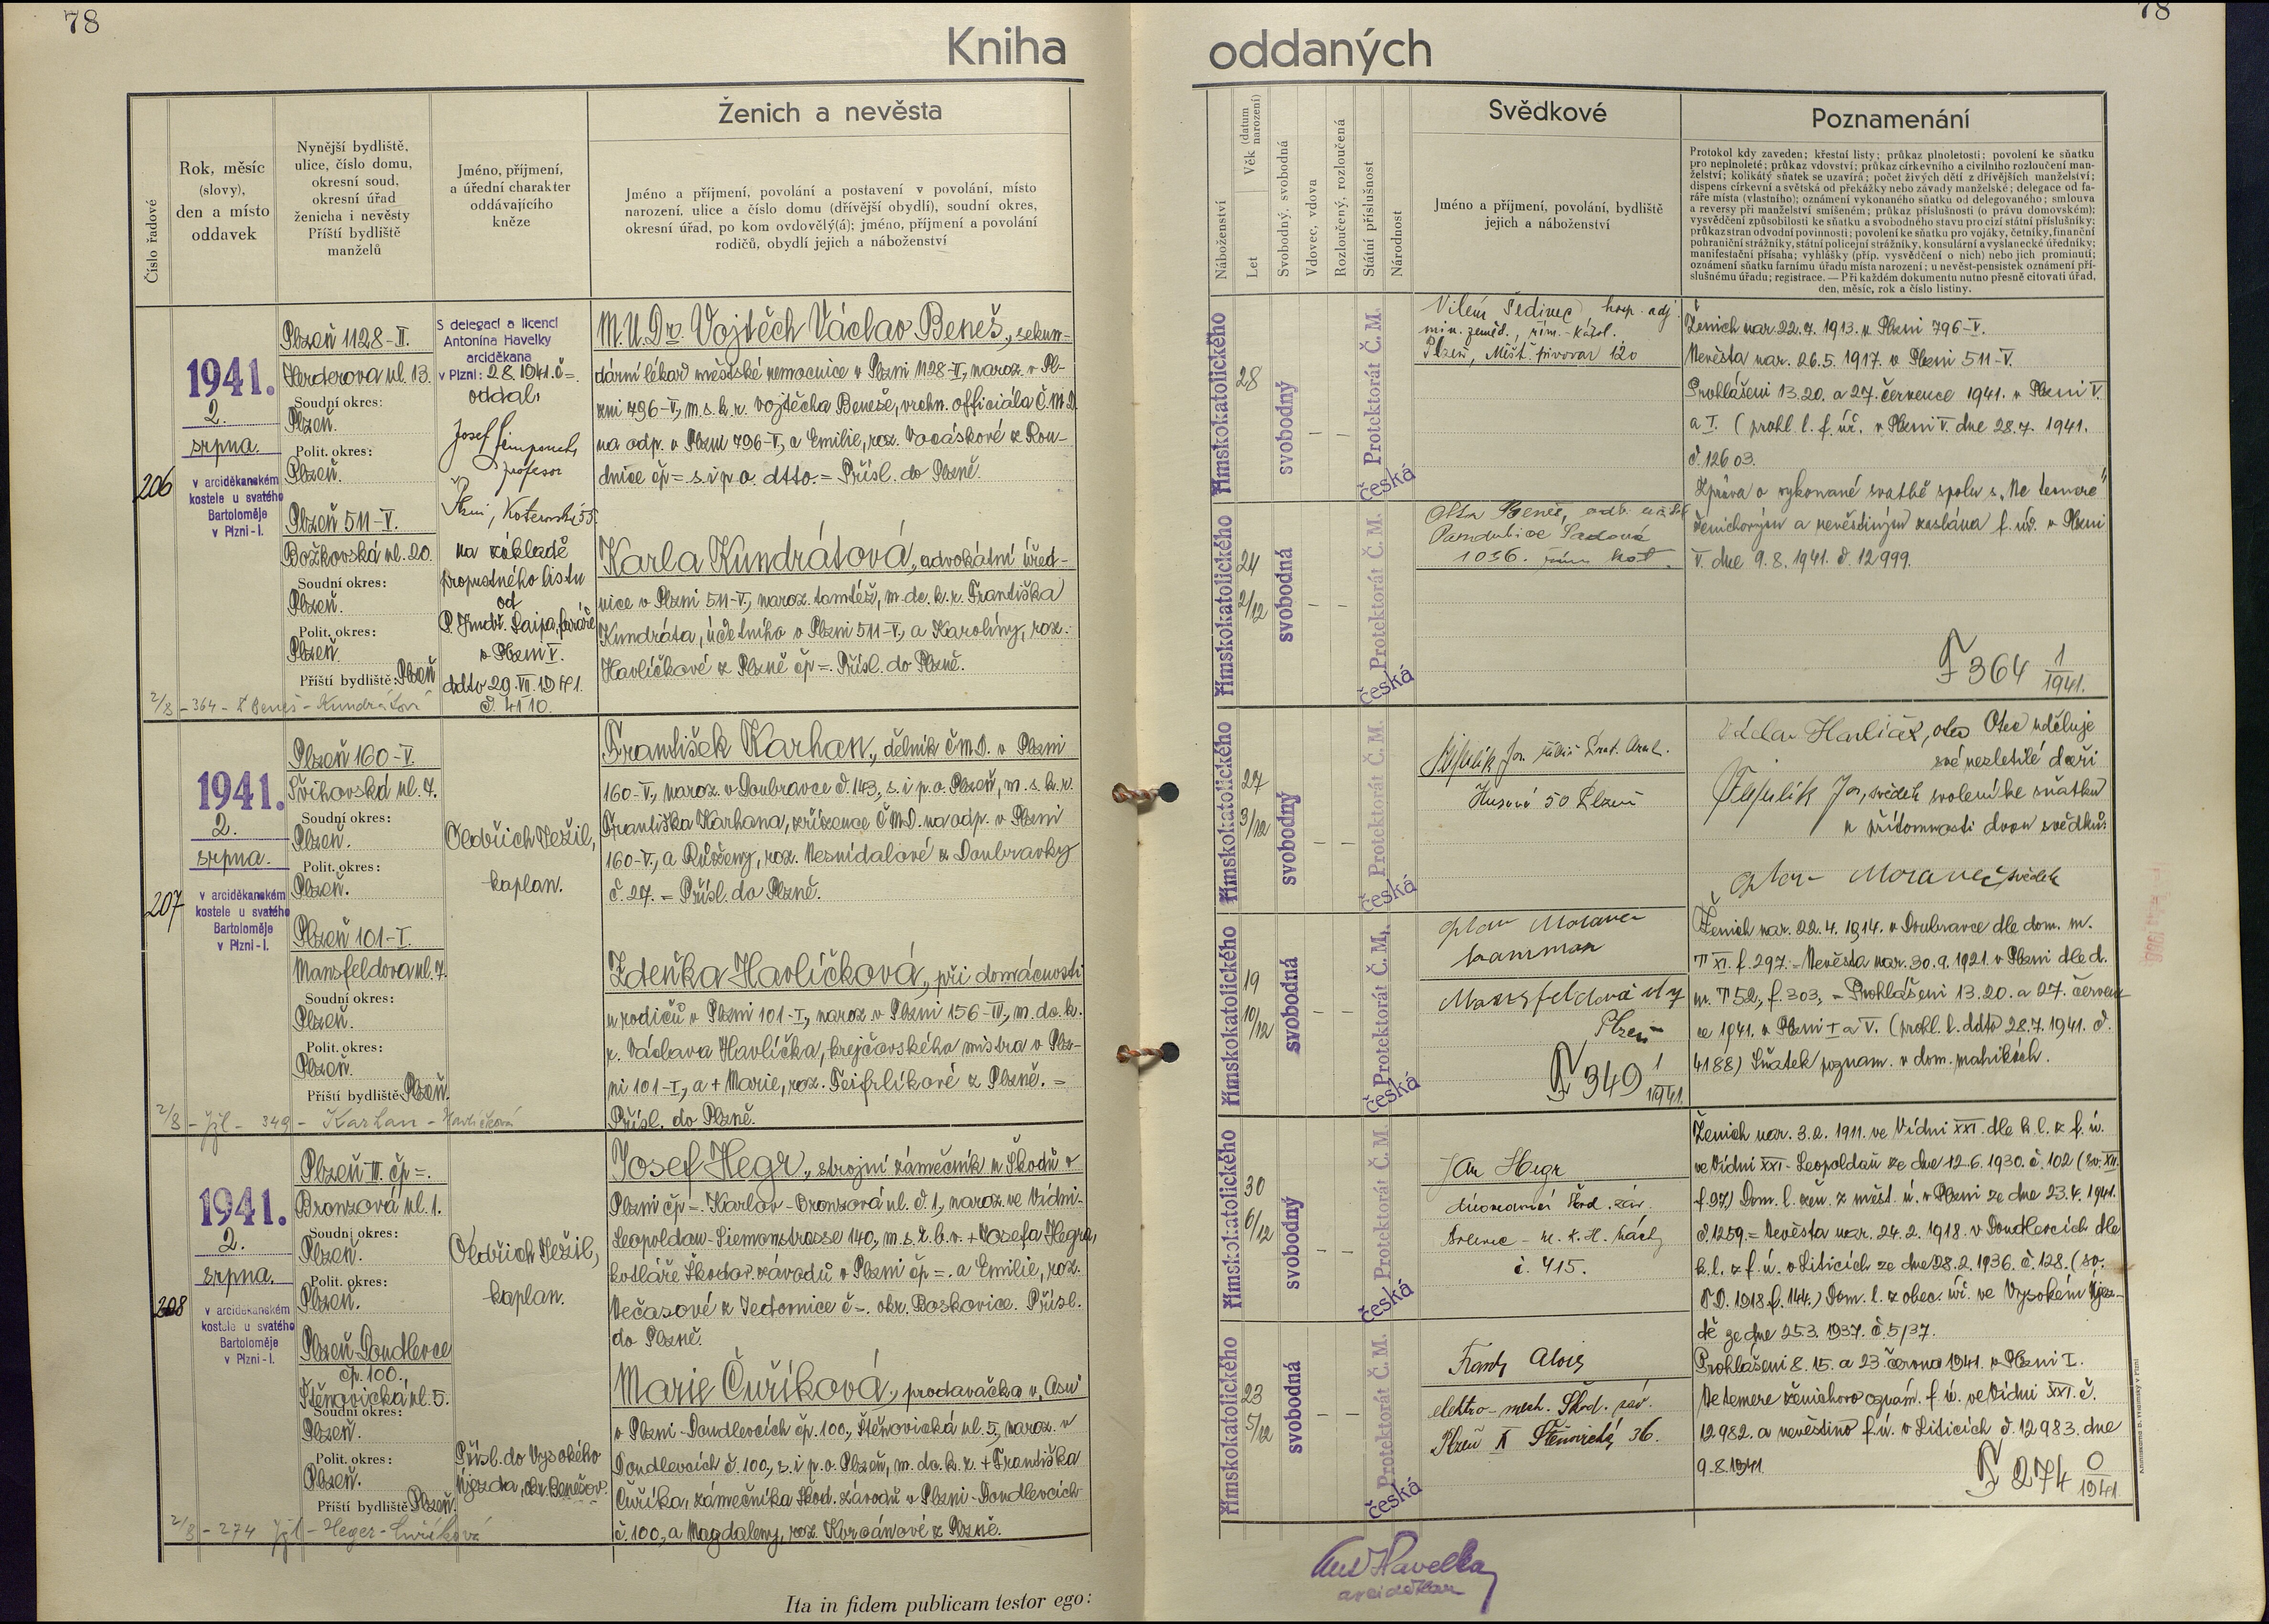 78
78
Kniha
oddaných
Číslo řadové
Rok, měsíc
(slovy),
den a místo
oddavek
Nynější bydliště,
ulice, číslo domu,
okresní soud,
okresní úřad
ženicha i nevěsty
Příští bydliště
manželů
Jméno, příjmení,
a úřední charakter
oddávajícího
kněze
Ženich a nevěsta
Jméno a příjmení, povolání a postavení v povolání, místo
narození, ulice a číslo domu (dřívější obydlí), soudní okres,
okresní úřad, po kom ovdovělý(á); jméno, příjmení a povolání
rodičů, obydlí jejich a náboženství
Náboženství
Let
Věk (datum narození)
Svobodný, svobodná
Vdovec, vdova
Rozloučený, rozloučená
Státní příslušnost
Národnost
Svědkové
Jméno a příjmení, povolání, bydliště
jejich a náboženství
Poznamenání
Protokol kdy zaveden; křestní listy; průkaz plnoletosti; povolení ke sňatku
pro neplnoleté; průkaz vdovství; průkaz církevního a civilního rozloučení man-
želství; kolikátý sňatek se uzavírá; počet živých dětí z dřívějších manželství;
dispens církevní a světská od překážky nebo závady manželské; delegace od fa-
ráře místa (vlastního); oznámení vykonaného sňatku od delegovaného; smlouva
a reversy při manželství smíšeném; průkaz příslušnosti (o právu domovském);
vysvědčení způsobilosti ke sňatku a svobodného stavu pro cizí státní příslušníky;
průkaz stran odvodní povinnosti; povolení ke sňatku pro vojáky, četníky, finanční
pohraniční strážníky, státní policejní strážníky, konsulární a vyslanecké úředníky;
manifestační přísaha; vyhlášky (příp. vysvědčení o nich) nebo jich prominutí;
oznámení sňatku farnímu úřadu místa narození; u nevěst-pensistek oznámení pří-
slušnému úřadu; registrace. — Při každém dokumentu nutno přesně citovati úřad,
den, měsíc, rok a číslo listiny.
206
1941.
2.
srpna.
v arciděkanském
kostele u svatého
Bartoloměje
v Plzni-I.
Plzeň 1128-II.
Herderova ul. 13.
Soudní okres:
Plzeň.
Polit. okres:
Plzeň.
Plzeň 511-V.
Božkovská ul. 20.
Soudní okres:
Plzeň.
Polit. okres:
Plzeň.
Příští bydliště: Plzeň
S delegací a licencí
Antonína Havelky
arciděkana
v Plzni: 2.8.1941. č=.
oddal:
Josef
profesor
na základě
propustného listu
od
P. Jindř. faráře
v Plzni V.
ddto 29.VII.1941.
č. 4110.
M.U.Dr. Vojtěch Václav Beneš, sekun-
dární lékař městské nemocnice v Plzni 1128-II, naroz. v Pl-
zni 796-V, m.s.k.r. Vojtěcha Beneše, vrchn. officiála Č.M.D.
na odp. v Plzni 796-V, a Emilie, roz. Vocáskové z Rou-
dnice čp= s.i p.o. dtto.= Přísl. do Plzně.
Karla Kundrátová, advokátní úřed-
nice v Plzni 511-V, naroz. tamtéž, m.dc.k.r. Františka
Kundráta, účetního v Plzni 511-V., a Karolíny, roz.
Havlíčkové z Plzně čp=. Přísl. do Plzně.
2/8 - 364 - Beneš - Kundrátová
římskokatolického
28
svobodný
— —
Protektorát Č.M.
česká
Vilém Šedivec, hosp. adj.
min. zeměd., řím.-katol.
Plzeň, Měšť. pivovar 120
římskokatolického
24
2/12
svobodná
— —
Protektorát Č.M.
česká
Otta Beneš, odb. učitel
Pardubice Sadová
1036. řím. kat.
Ženich nar. 22.7.1913. v Plzni 796-V.
Nevěsta nar. 26.5.1917. v Plzni 511-V.
Prohlášeni 13. 20. a 27. července 1941. v Plzni V.
a I. (prohl. l. f. úř. v Plzni V. dne 28.7. 1941.
č. 12603.
Zpráva o vykonané svatbě spolu s „Ne temere“
ženichovým a nevěstiným zaslána f. úř. v Plzni
V. dne 9.8.1941. č. 12999.
F 364 1/1941.
207
1941.
2.
srpna.
v arciděkanském
kostele u svatého
Bartoloměje
v Plzni-I.
Plzeň 160-V.
Švihovská ul. 7.
Soudní okres:
Plzeň.
Polit. okres:
Plzeň.
Plzeň 101-I.
Mansfeldova ul. 7.
Soudní okres:
Plzeň.
Polit. okres:
Plzeň.
Příští bydliště Plzeň.
Oldřich Ježil,
kaplan.
František Karhan, dělník ČMD. v Plzni
160-V., naroz. v Doubravce č. 143, s. i p.o. Plzeň, m.s.k.r.
Františka Karhana, zřízence ČMD. na odp. v Plzni
160-V., a Růženy, roz. Nesnídalové z Doubravky
č. 27. = Přísl. do Plzně.
Zdeňka Havlíčková, při domácnosti
u rodičů v Plzni 101-I, naroz. v Plzni 156-IV, m.dc.k.
r. Václava Havlíčka, krejčovského mistra v Plz-
ni 101-I, a + Marie, roz. Fejfrlíkové z Plzně. =
Přísl. do Plzně.
2/8 - 349 - Karhan - Havlíčková
římskokatolického
27
3/12
svobodný
— —
Protektorát Č.M.
česká
Husova 50 Plzeň
římskokatolického
19
10/12
svobodná
— —
Protektorát Č.M.
česká
Otakar Moravec
Mansfeldova ul 7
Plzeň
F 349 1/1941.
Václav Havlíček, otec Otec uděluje
své nezletilé dceři
svědek svolení ke sňatku
v přítomnosti dvou svědků:
Moravec, svědek
Ženich nar. 22.4.1914. v Doubravce dle dom. m.
T XI. f. 297. = Nevěsta nar. 30.9.1921. v Plzni dle d.
m. T 52, f. 303. = Prohlášeni 13. 20. a 27. červen-
ce 1941. v Plzni I a V. (prohl. l. ddto 28.7.1941. č.
4188) Sňatek poznam. v dom. matrikách.
208
1941.
2.
srpna.
v arciděkanském
kostele u svatého
Bartoloměje
v Plzni-I.
Plzeň III. čp=.
Bronzová ul. 1.
Soudní okres:
Plzeň.
Polit. okres:
Plzeň.
Plzeň-Doudlevce
čp. 100.
Štěnovická ul. 5.
Soudní okres:
Plzeň.
Polit. okres:
Plzeň.
Příští bydliště Plzeň.
Oldřich Ježil,
kaplan.
Přísl. do Vysokého
Újezda, okr. Benešov.
Josef Hegr, strojní zámečník u Škodů v
Plzni čp=. Karlov-Bronzová ul. č. 1, naroz. ve Vídni-
Leopoldau-Siemenstrasse 140, m.s.k.b.v. + Josefa Hegra,
kotláře Škodov. závodů v Plzni čp=. a Emilie, roz.
Večasové z Jedomice č=. okr. Boskovice. Přísl.
do Plzně.
Marie Čuříková, prodavačka v „Asu“
v Plzni-Doudlevcích čp. 100, Štěnovická ul. 5, naroz. v
Doudlevcích č. 100, s. i p.o. Plzeň, m.dc.k.r. + Františka
Čuříka, zámečníka Škod. závodů v Plzni-Doudlevcích
č. 100, a Magdaleny, roz. z Plzně.
2/8 - 274 - Heger - Čuříková
římskokatolického
30
6/12
svobodný
— —
Protektorát Č.M.
česká
Jan Hegr
Škod. záv.
č. 415.
římskokatolického
23
5/12
svobodná
— —
Protektorát Č.M.
česká
Alois
elektro-mech. Škod. záv.
Plzeň Štěnovická 36.
Ženich nar. 3.2.1911. ve Vídni XXI. dle k.l. z f. ú.
ve Vídni XXI-Leopoldau ze dne 12.6.1930. č. 102 (sv. XII.
f. 97) Dom. l. žen. z měst. ú. v Plzni ze dne 23.4.1941.
č. 1259. = Nevěsta nar. 24.2.1918. v Doudlevcích dle
k.l. z f. ú. v Liticích ze dne 28.2.1936. č. 128. (sv.
D. 1918 f. 144.) Dom. l. z obec. úř. ve Vysokém Újez-
dě ze dne 25.3.1937. č. 5/37.
Prohlášeni 8. 15. a 23. června 1941. v Plzni I.
Ne temere ženichovo oznám. f. ú. ve Vídni XXI. č.
12982. a nevěstino f. ú. v Liticích č. 12983. dne
9.8.1941.
F 274 0/1941.
Ant Havelka
arciděkan
Ita in fidem publicam testor ego: